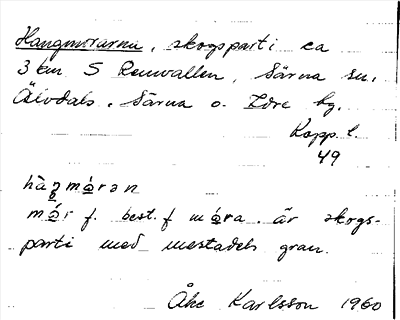 Hangmorarna, skogsparti ca
3 km S Renvallen, Särna sn.
Älvdals, Särna o. Idre tg.
Kopp. l.
49
hàŋmóran
mór f. best. f móra. är skogs-
parti med mestadels gran.
Åke Karlsson 1960